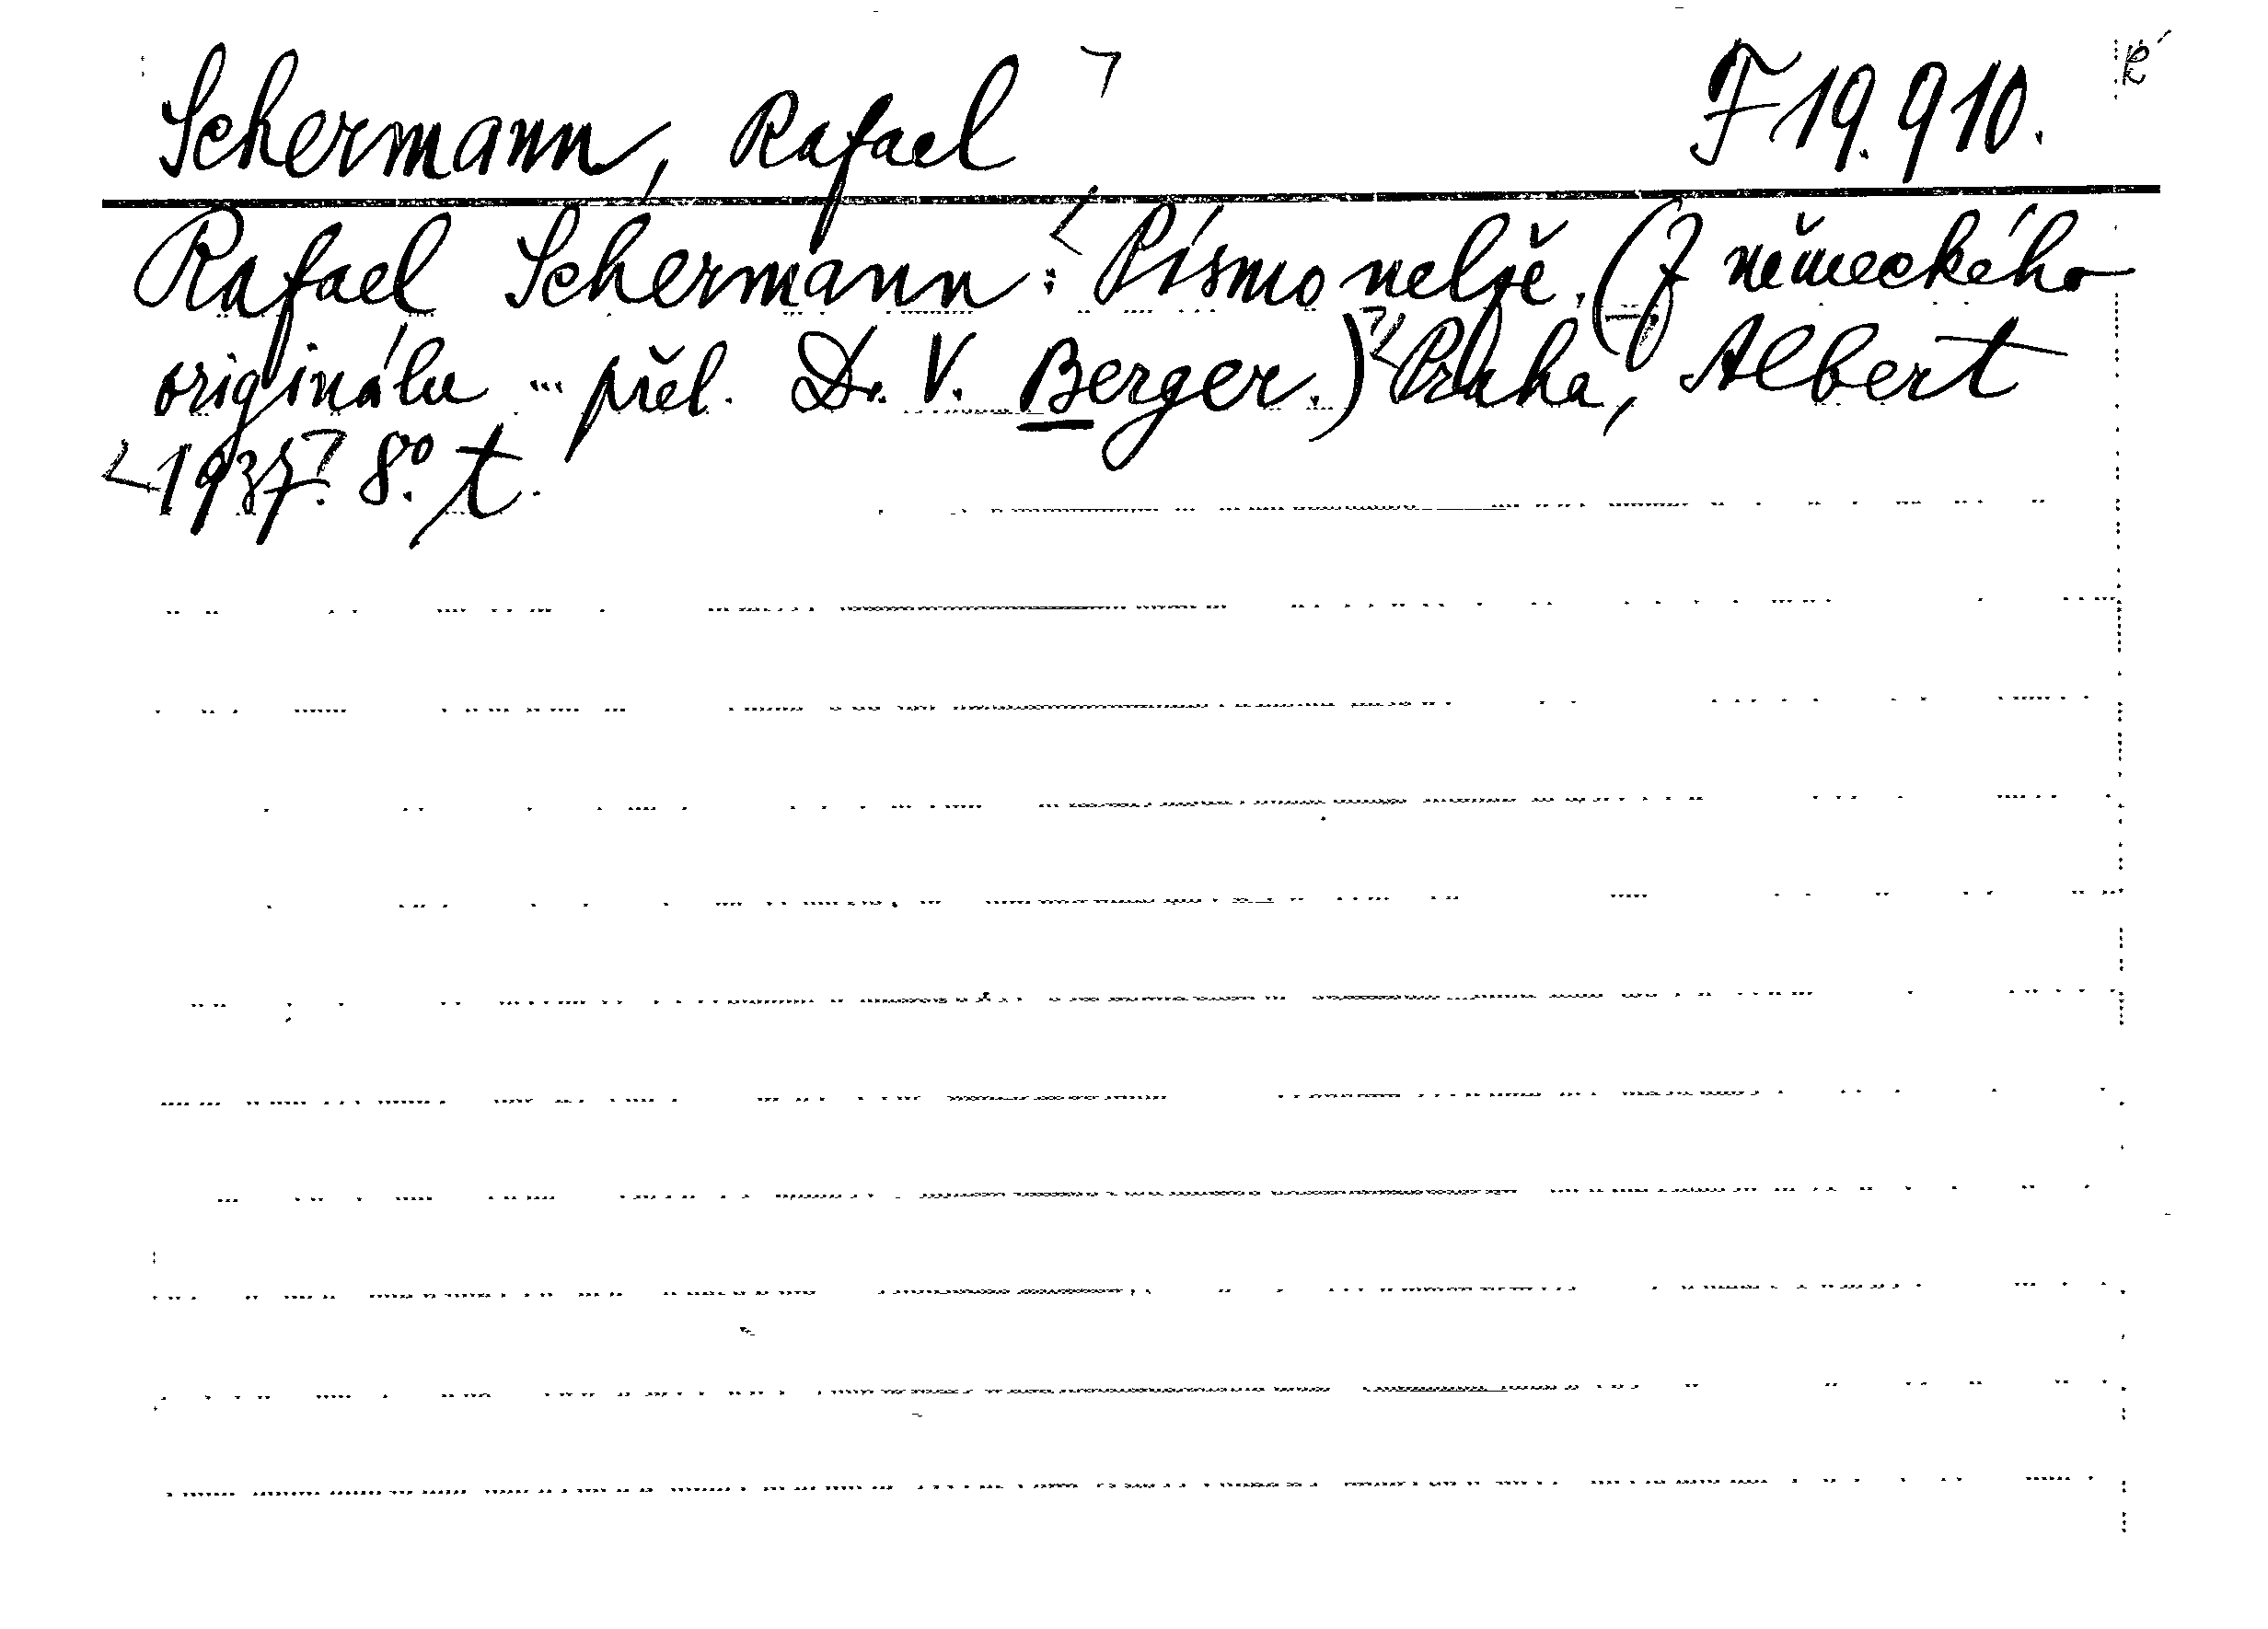 Schermann, Rafael F 19.910.
Rafael Schermann: Písmo nelže. (Z německého
originálu ... přel. Dr. V. Berger.) Praha, Albert
1937. 8°. t.